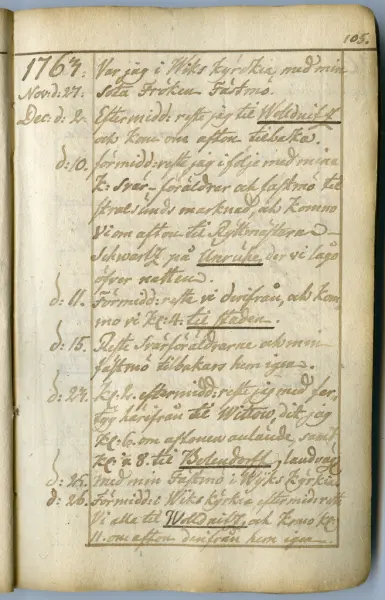 105.
1763. War jag i Wiks Kyrckia, med min
Nov: d: 27. Söta Fröken Fästmö.
Dec: d: 2. Eftermidd: reste jag til Woldnitz
och kom om afton tilbaka.
d: 10. formidd: reste jag i följe med mina
K: Svär-föräldrar och fästmö til
Stralsunds marknad, och kommo
vi om afton til Ryttmästaren
Schwartz på Unrühe, der vi lågo
öfver natten.
d: 11. Förmidd: reste vi derifrån, och kom-
mo vi Kl: 4. til staden.
d: 15. Reste Svärföräldrarne och min
fästmö tilbakars hem igen.
d: 24. Kl: 2. eftermidd: reste jag med far-
tyg härifrån til Wittow, dit jag
Kl: 6. om aftonen anlände, samt
Kl: 8. til Bolendorff, landvag
d: 25. med min Fästmö i Wyks Kyrkia.
d: 26. Förmidd: i Wiks Kyrkia eftermid: reste
Vi alla til Wolldnitz, och komo Kl:
11. om afton derifrån hem igen.